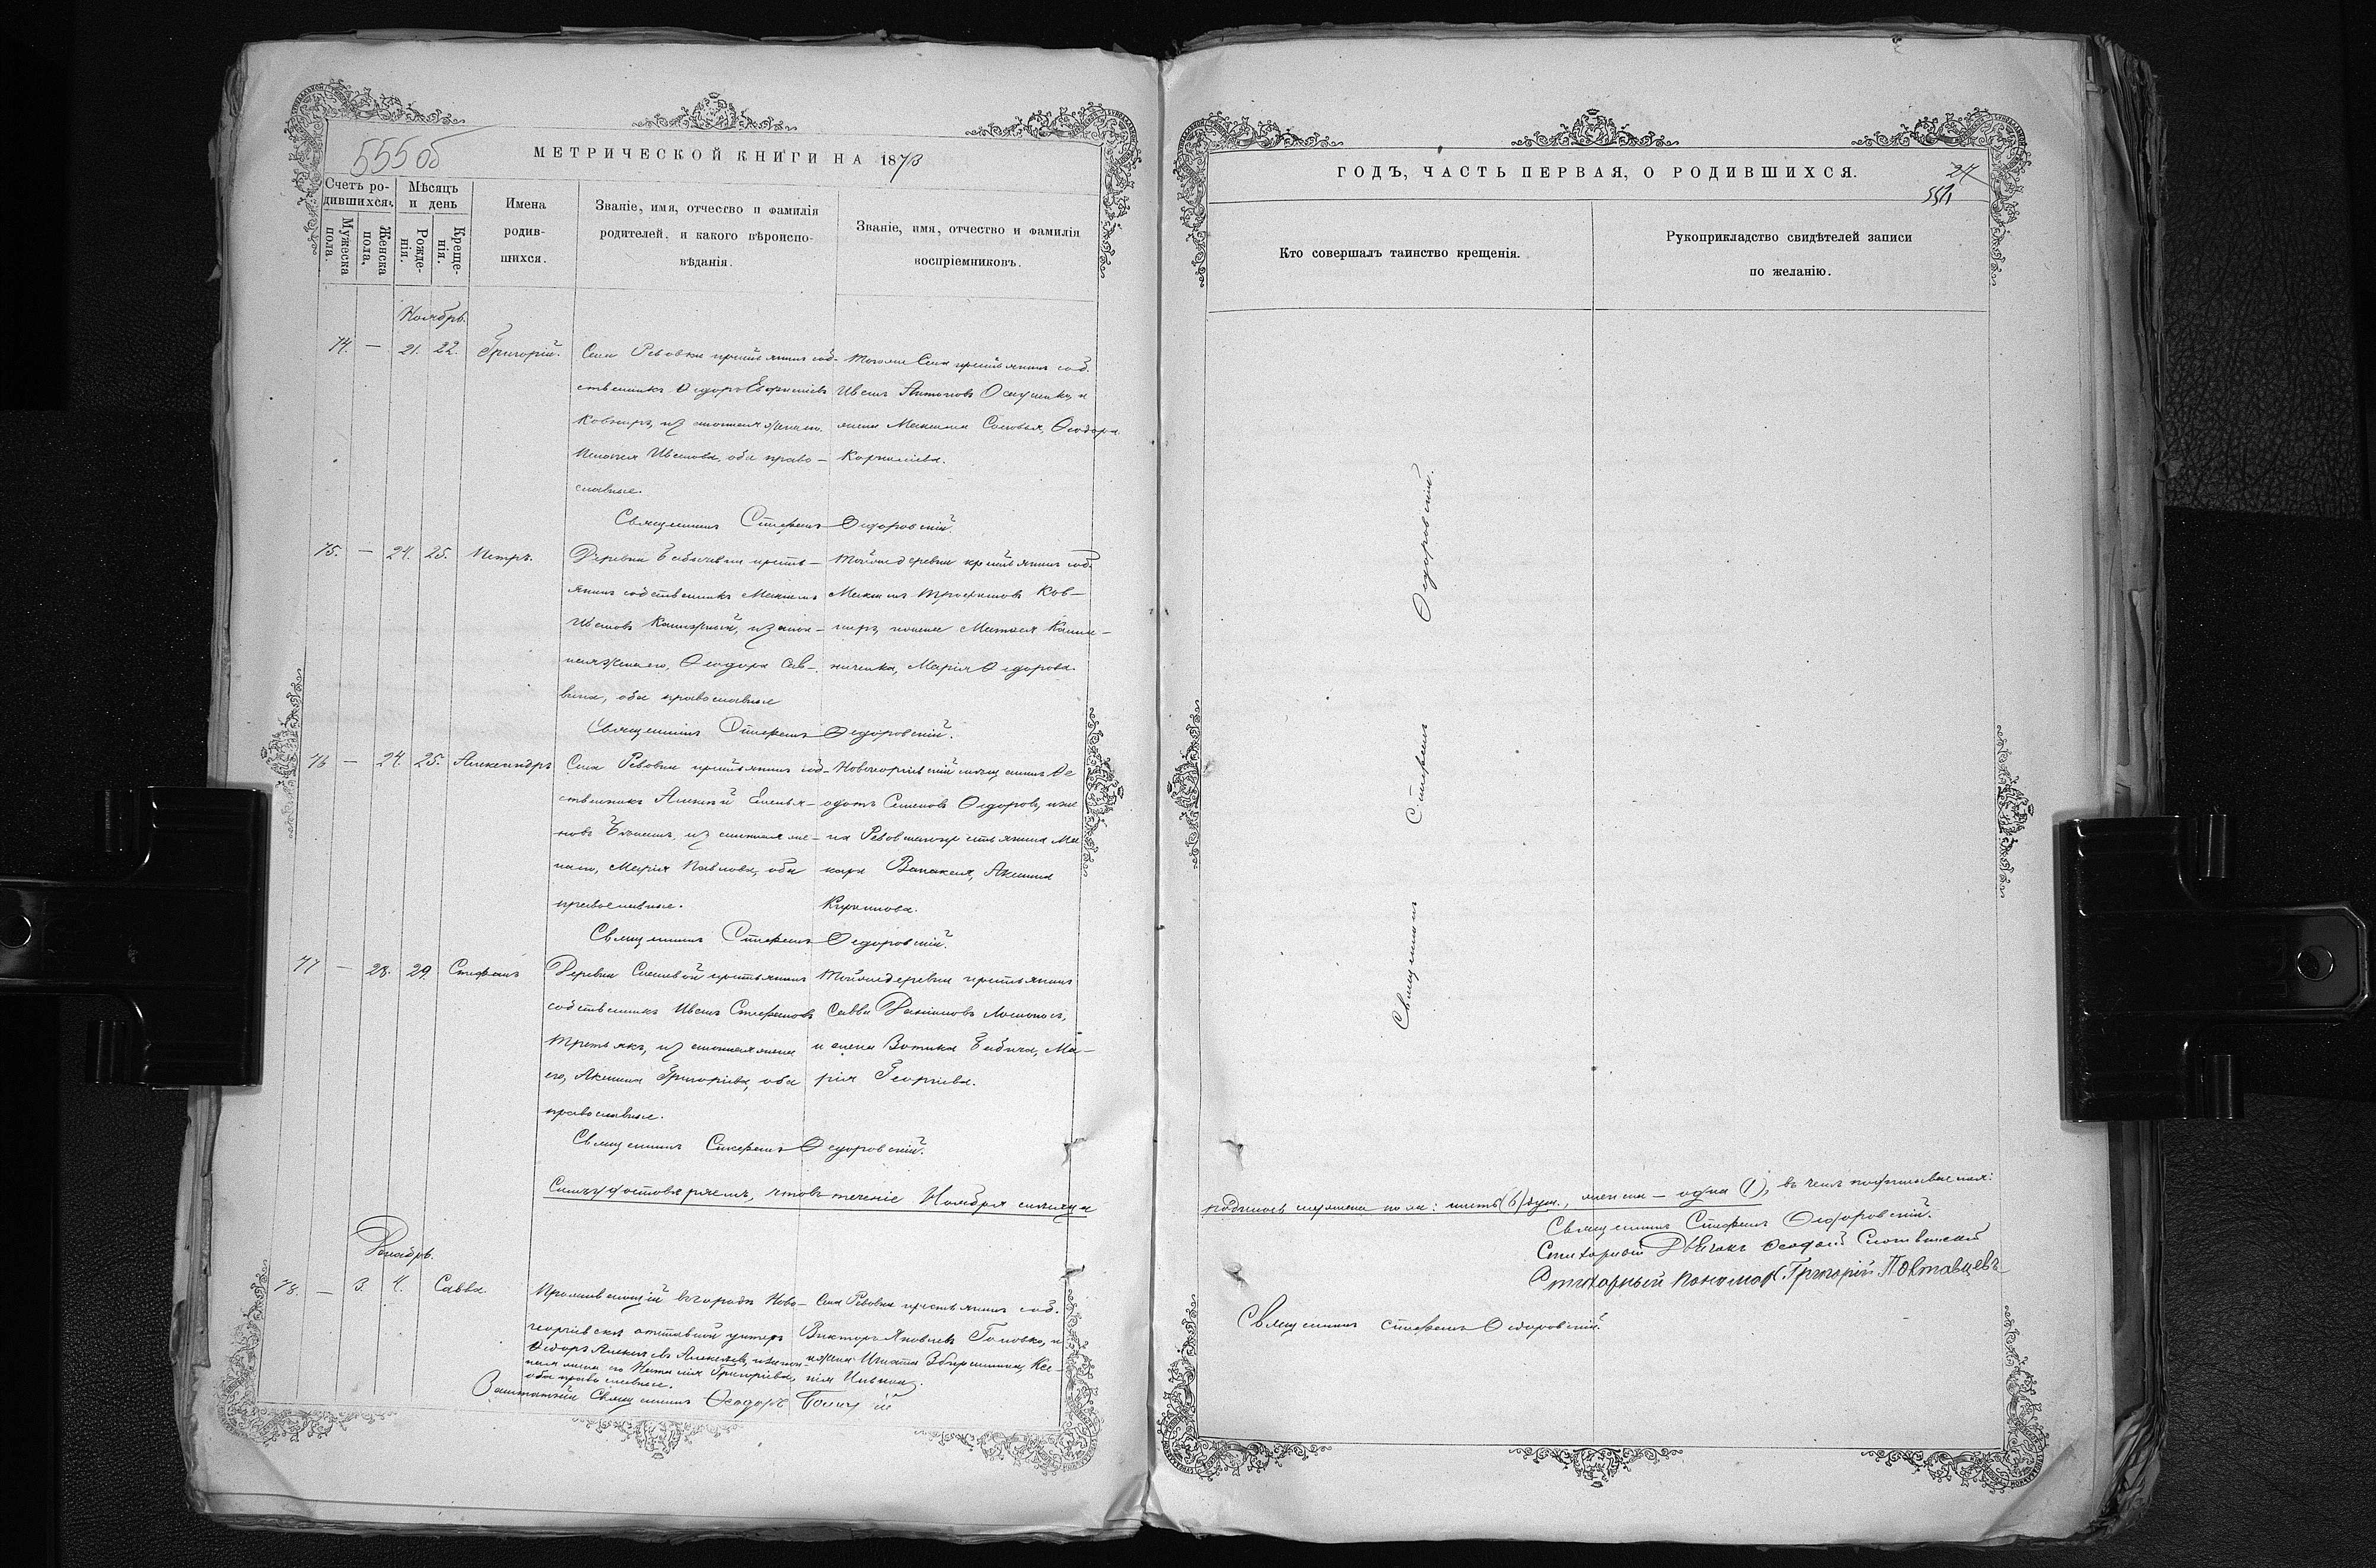 555об
МЕТРИЧЕСКОЙ КНИГИ НА 1873
Счетъ ро-
дившихся.
Мужеска
пола.
Женска
пола.
Мѣсяцъ
и день
Рожде-
нія.
Креще-
нія.
Имена
родив-
шихся.
Званіе, имя, отчество и фамилія
родителей, и какого вѣроиспо-
вѣданія.
Званіе, имя, отчество и фамилія
воспріемниковъ.
Ноябрь.
74. — 21. 22. Григорій.
Села Ревовки крестьянинъ соб-
ственникъ Ѳедоръ Евфиміевъ
Ковниръ, из законная жена его
Иванова, оба право-
славные.
Тогоже Села крестьянинъ соб.
Иванъ Антоновъ Осаушко, и
жена Максима Соловья, Ѳеодора
Корниліева.
Священникъ Стефанъ Ѳедоровскій.
75. — 24. 25. Петръ.
Деревни Бабичевки кресть-
янинъ собственникъ Максимъ
Ивановъ из закон-
ная жена его, Ѳеодора Сав-
вина, оба православные
Тойже деревни крестьянинъ соб.
Максимъ Трофимовъ Ков-
ниръ, и жена Матвея Кали-
ниченка, Марія Ѳедорова.
Священникъ Стефанъ Ѳедоровскій.
76 — 24. 25. Александръ
Села Ревовки крестьянинъ соб-
ственникъ Алексѣй Емелья-
новъ из законная же-
на его, Марія Павлова, оба
православные.
Новогеоргіевскій мѣщанинъ Ѳе
одотъ Семеновъ Ѳедоровъ, и же
на Ревовки крестьянина Ма
кара Акилина
Священникъ Стефанъ Ѳедоровскій.
77 — 28. 29. Стефанъ
Деревни крестьянинъ
собственникъ Иванъ Стефановъ
Третьякъ, из законная жена
его, Акилина Григоріева, оба
православные.
Тойже деревни крестьянинъ
Савва Даніиловъ
и жена Бабича, Ма-
рія Георгіева.
Священникъ Стефанъ Ѳедоровскій.
Симъ удостовѣряемъ, что въ теченіе Ноября мѣсяца
Декабрь.
78. — 3. 4. Савва.
Проживающій въ городѣ Ново-
георгіевскѣ отставной унтеръ
Ѳедоръ Алексѣевъ Алексѣевъ, и закон
ная жена его Наталія Григоріева,
оба православные.
Села Ревовки крестьянинъ соб.
Викторъ Яковлевъ Головко, и
жена Игната Ксе-
нія
Заштатный Священникъ Ѳеодоръ
ГОДЪ, ЧАСТЬ ПЕРВАЯ, О РОДИВШИХСЯ.
24
554
Кто совершалъ таинство крещенія.
Рукоприкладство свидѣтелей записи
по желанію.
Священникъ Стефанъ Ѳедоровскій.
родилось мужеска пола: шесть (6) душ., женска — одна (1), въ чемъ подписываемся:
Священникъ Стефанъ Ѳедоровскій.
Стихарный Дьячокъ
Стихарный пономарь Григорій Полтавцевъ
Священникъ Стефанъ Ѳедоровскій.